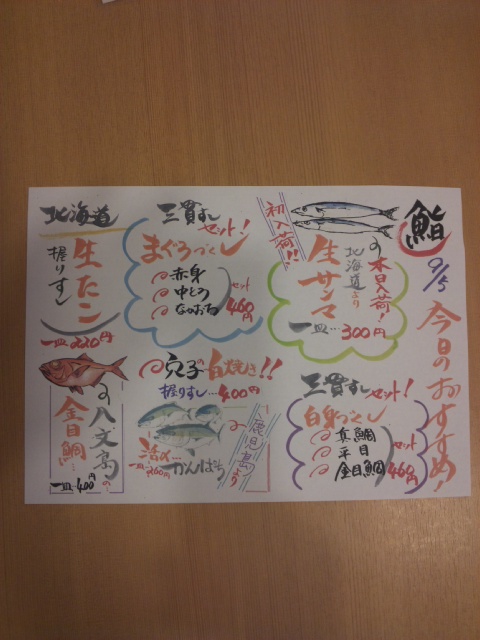 鮨
9/5
今日のおすすめ!
初入荷!!
本日入荷!
北海道より
生サンマ
一皿…300円
三貫すしセット!
まぐろづくし
赤身
中とろ
なかおち
セット
460円
北海道
生たこ
握りすし
一皿…220円
三貫すしセット!
白身づくし
真鯛
平目
金目鯛
セット
460円
穴子の白焼き!!
握りすし…400円
鹿児島より
活〆…かんぱち
一皿…260円
八丈島の…
金目鯛…
一皿…400円